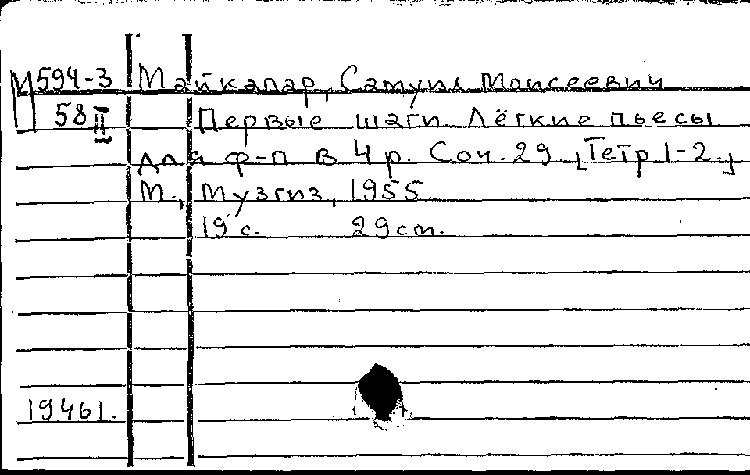 М594-3 Майкапар, Самуил Моисеевич
58 II Первые шаги. Лёгкие пьесы
для ф-п в 4 р. Соч. 29 [Тетр. 1-2.]
М., Музгиз, 1955
19 с. 29 см.
19461.